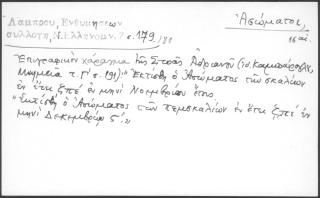 Λάμπρου, Ενθυμήσεων
συλλογή, Ν. Ελληνομν. 7 σ. 179/81
Ἀσώματος,
16 αἰ.
Ἐπιγραφικὸν χάραγμα τῆς Στοᾶς Ἀδριανοῦ (ἰδ. Καμπούρογλου,
Μνημεῖα τ. Γ΄ σ. 191): "Ἐκτίσθη ὁ Ἀσώματος τῶν σκαλίων
ἐν ἔτει ζπε΄ ἐν μηνὶ Νοεμβρίου
"Ἐκτίσθη ὁ Ἀσώματος τῶν σκαλίων ἐν ἔτει ζπε΄ ἐν
μηνὶ Δεκεμβρίῳ 5΄."